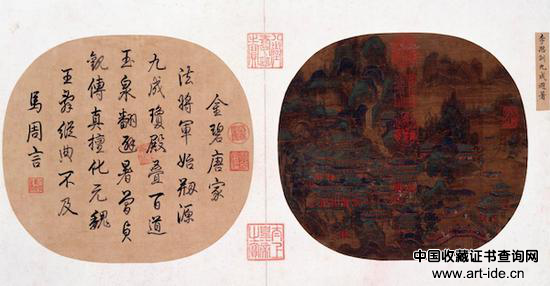 李思訓九成避暑
金碧唐家
法將軍始剏源
九成瓊殿疊百道
玉泉翻避暑曾貞
觀傳真擅化元魏
王辭縱典不及
馬周言
太上皇帝之寶
中国收藏证书查询网
www.art-ide.cn